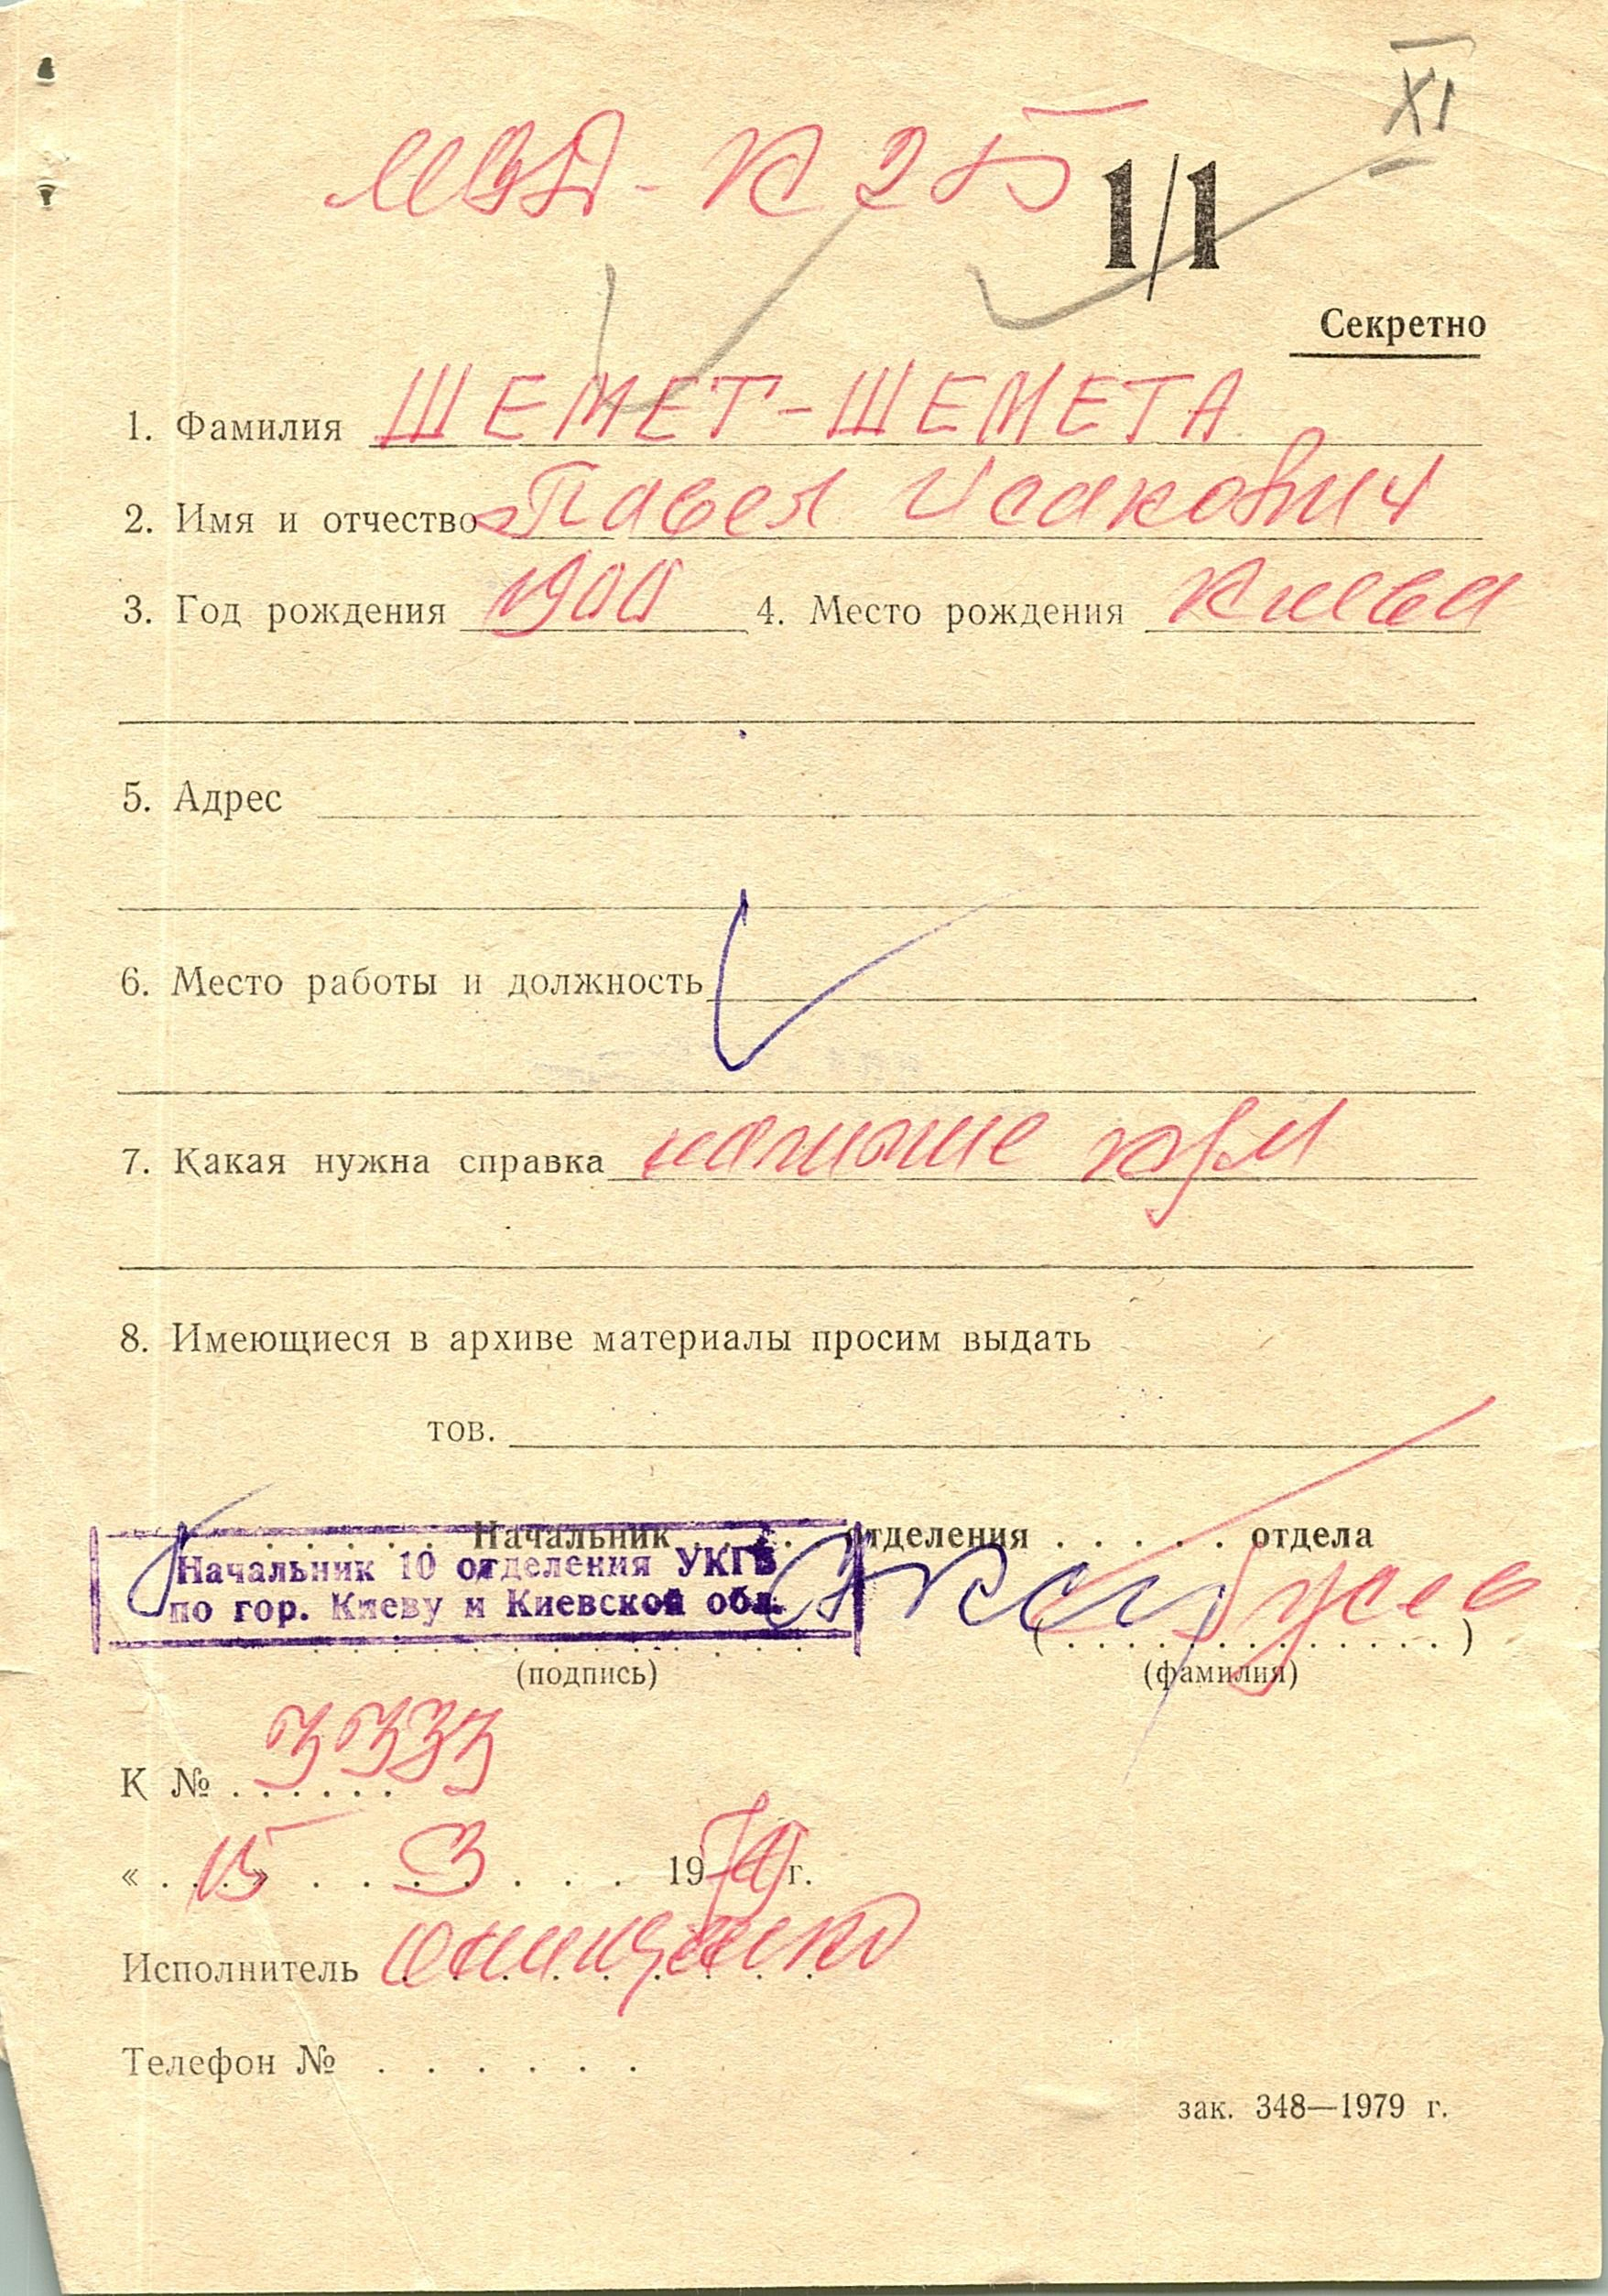 XI
МВД - К 25
1/1
Секретно
1. Фамилия ШЕМЕТ-ШЕМЕТА
2. Имя и отчество Павел Исакович
3. Год рождения 1900 4. Место рождения
5. Адрес
6. Место работы и должность
7. Какая нужна справка наличие
8. Имеющиеся в архиве материалы просим выдать
тов.
Начальник . . . отделения . . . . . отдела
Начальник 10 отделения УКГБ
по гор. Киеву и Киевской обл.
(подпись) (фамилия)
К № 3333
« 15 » 3 1979 г.
Исполнитель Онищенко
Телефон № . . . . . .
зак. 348—1979 г.